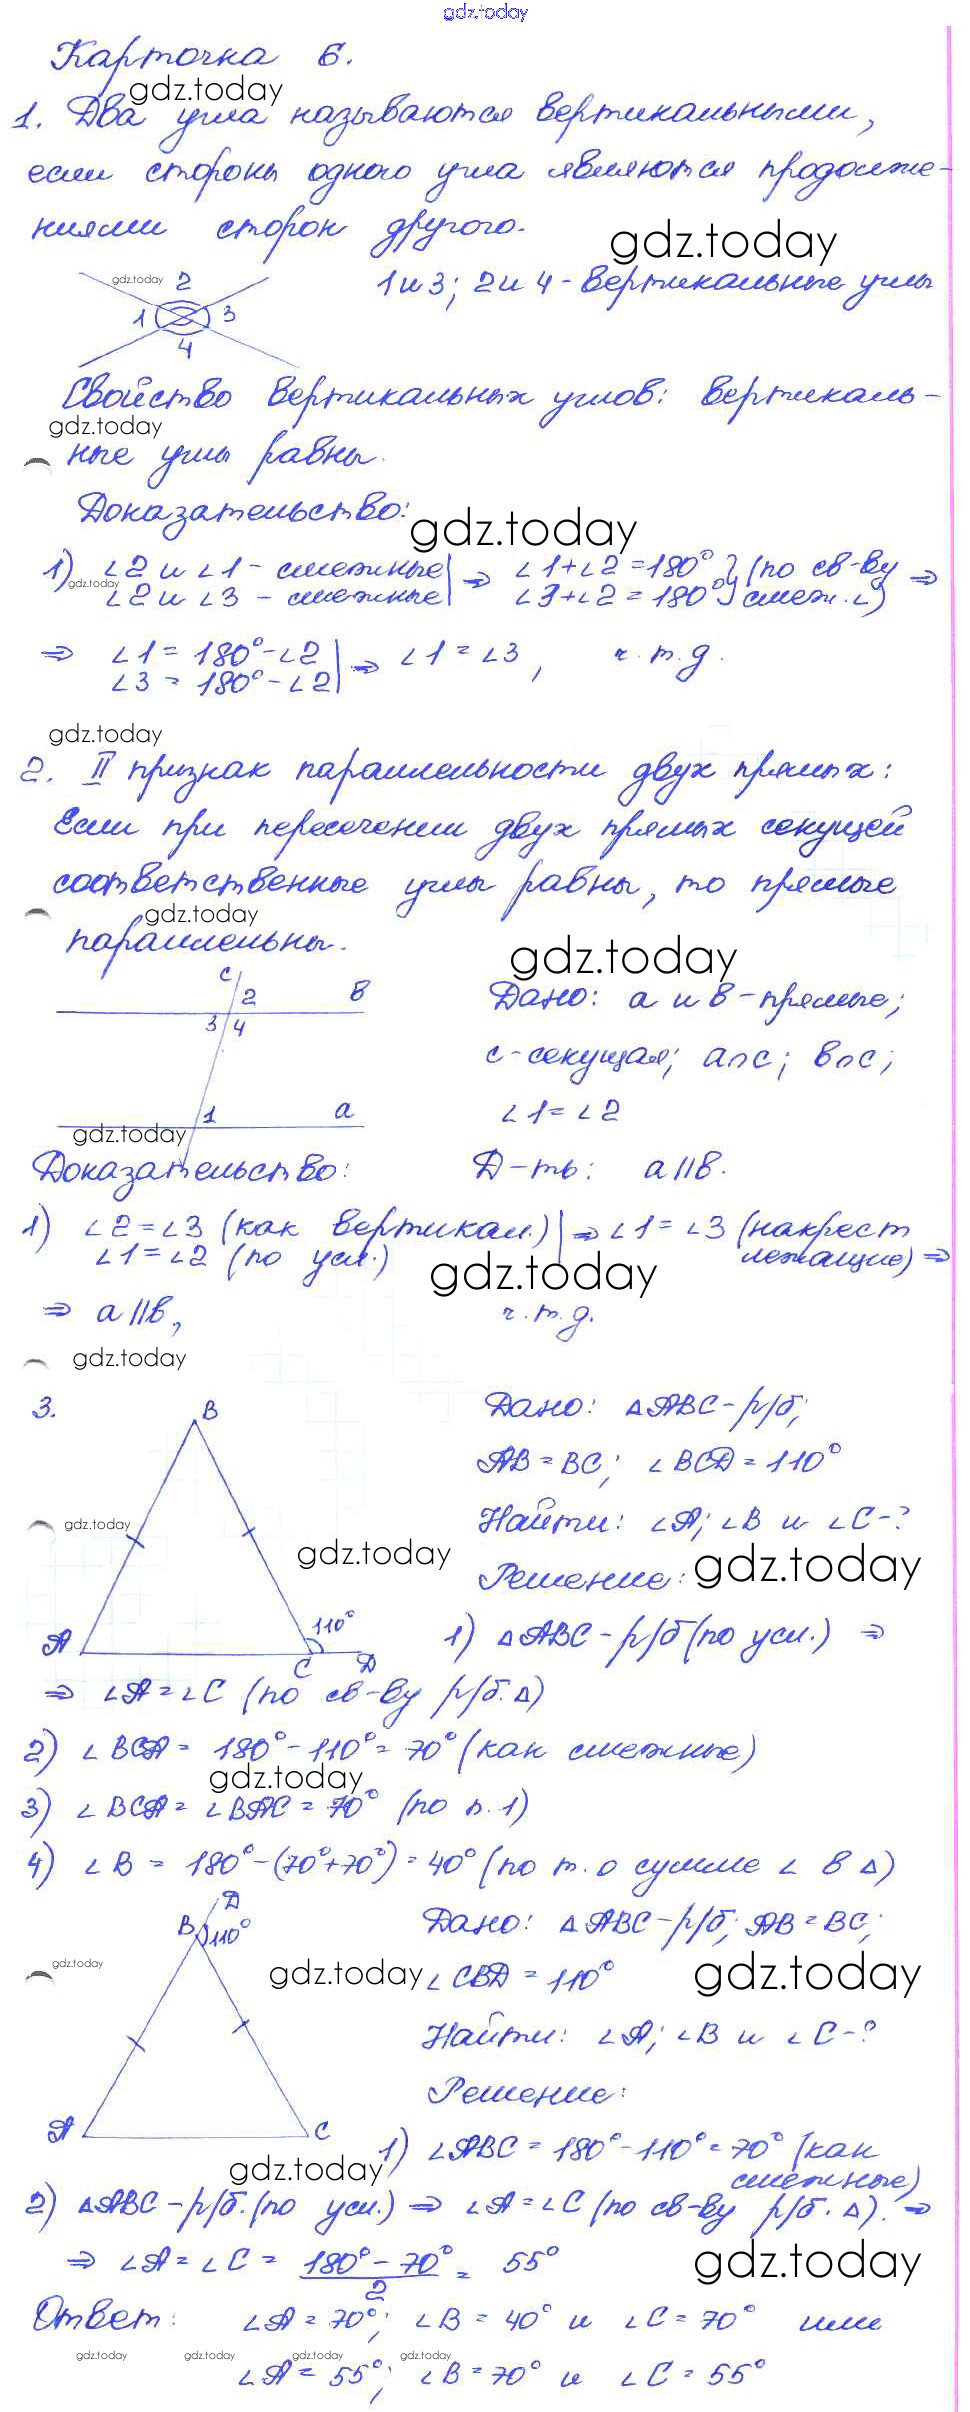 gdz.today
Карточка 6.
gdz.today
1. Два угла называются вертикальными,
если стороны одного угла являются продолже-
ниями сторон другого.
gdz.today
gdz.today
2
1 3
4
1 и 3; 2 и 4 - вертикальные углы
Свойство вертикальных углов: вертикаль-
gdz.today
ные углы равны.
Доказательство:
gdz.today
1) ∠2 и ∠1 - смежные | ⇒ ∠1+∠2=180° } (по св-ву ⇒
gdz.today
∠2 и ∠3 - смежные | ∠3+∠2=180° } смеж. ∠)
⇒ ∠1 = 180°-∠2 | ⇒ ∠1 = ∠3, ч.т.д.
∠3 = 180°-∠2 |
gdz.today
2. II признак параллельности двух прямых:
Если при пересечении двух прямых секущей
соответственные углы равны, то прямые
gdz.today
параллельны.
gdz.today
c
2 в
3 4
1 a
gdz.today
Дано: a и в - прямые;
c - секущая; a∩c; в∩c;
∠1 = ∠2
Доказательство: Д-ть: a||в.
1) ∠2=∠3 (как вертикал.) | ⇒ ∠1=∠3 (накрест
∠1=∠2 (по усл.) | лежащие) ⇒
gdz.today
⇒ a||в, ч.т.д.
gdz.today
3.
B
A C D
110°
gdz.today
gdz.today
Дано: △ABC - р/б;
AB = BC; ∠BCD = 110°
Найти: ∠A; ∠B и ∠C - ?
Решение:
gdz.today
1) △ABC - р/б (по усл.) ⇒
⇒ ∠A = ∠C (по св-ву р/б. △)
2) ∠BCA = 180°-110°=70° (как смежные)
gdz.today
3) ∠BCA = ∠BAC = 70° (по п.1)
4) ∠B = 180°-(70°+70°) = 40° (по т. о сумме ∠ в △)
D
B 110°
A C
gdz.today
gdz.today
Дано: △ABC - р/б; AB = BC;
∠CBD = 110°
gdz.today
Найти: ∠A; ∠B и ∠C - ?
Решение:
1) ∠ABC = 180°-110°=70° (как
смежные)
gdz.today
2) △ABC - р/б. (по усл.) ⇒ ∠A = ∠C (по св-ву р/б. △). ⇒
⇒ ∠A = ∠C = 180° - 70° / 2 = 55°
gdz.today
Ответ: ∠A = 70°; ∠B = 40° и ∠C = 70° или
gdz.today gdz.today gdz.today gdz.today
∠A = 55°; ∠B = 70° и ∠C = 55°